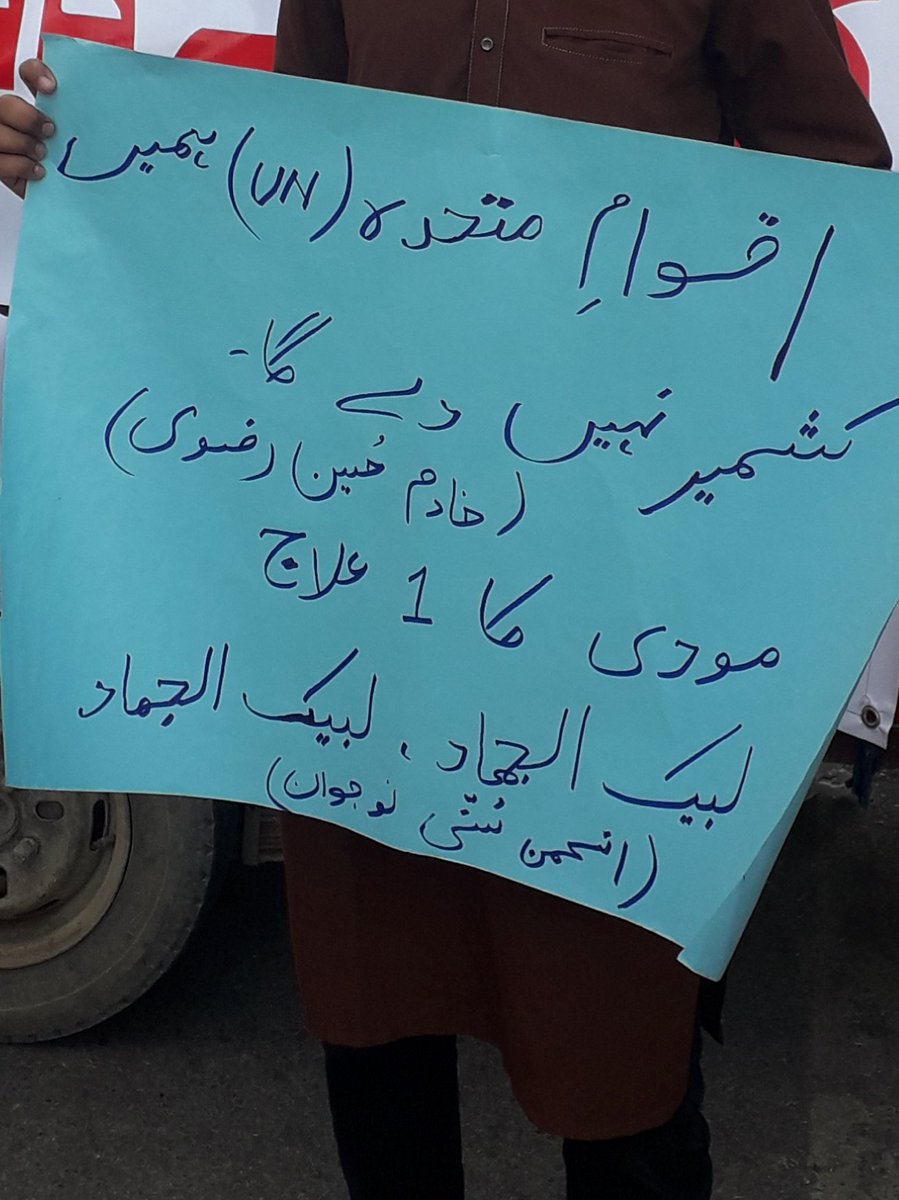 اقوامِ متحدہ (UN) ہمیں
کشمیر نہیں دے گا۔
(خادم حُسین رضوی)
مودی کا 1 علاج
لبیک الجہاد، لبیک الجہاد
(انجمن سُنّی نوجوان)